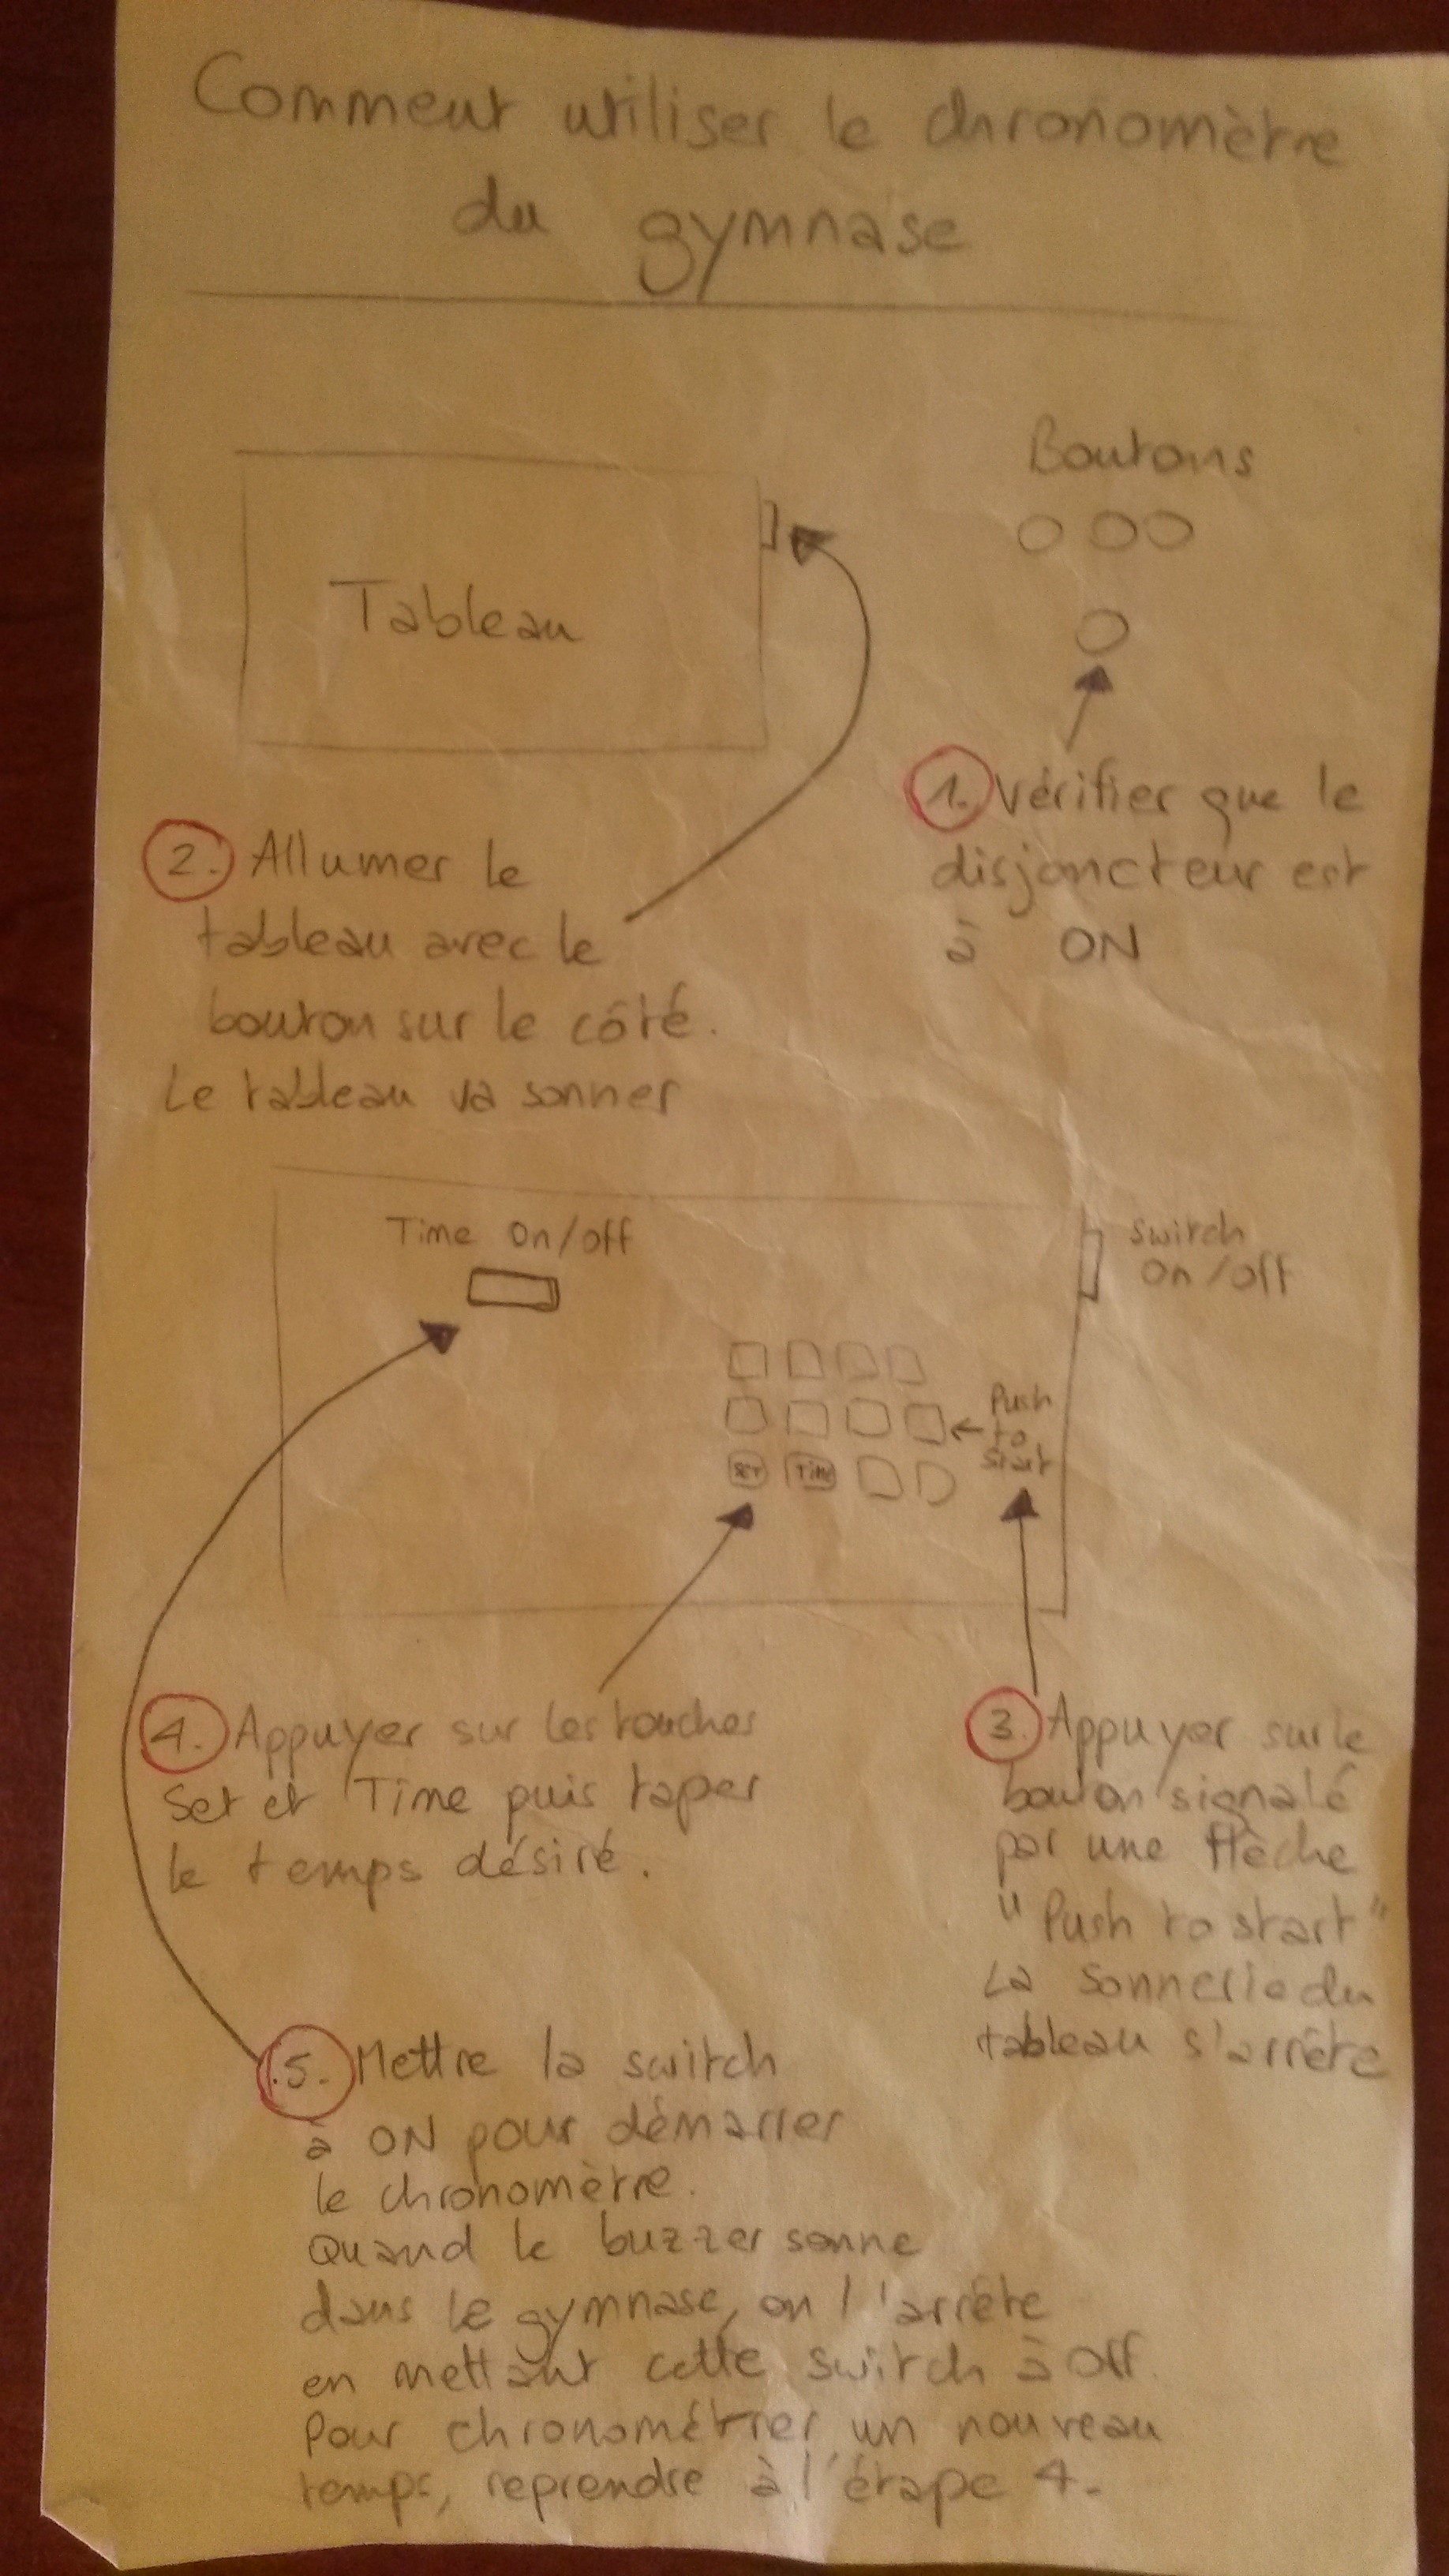 Comment utiliser le chronomètre
du gymnase
Boutons
Tableau
1. Vérifier que le
disjoncteur est
à ON
2. Allumer le
tableau avec le
bouton sur le côté.
Le tableau va sonner
Time On/off
Switch
On/off
Push
to
start
SET Time
3. Appuyer sur le
bouton signalé
par une flèche
"Push to start"
La sonnerie du
tableau s'arrête
4. Appuyer sur les touches
Set et Time puis taper
le temps désiré.
5. Mettre la switch
à ON pour démarrer
le chronomètre.
Quand le buzzer sonne
dans le gymnase, on l'arrête
en mettant cette switch à Off.
Pour chronométrer un nouveau
temps, reprendre à l'étape 4.